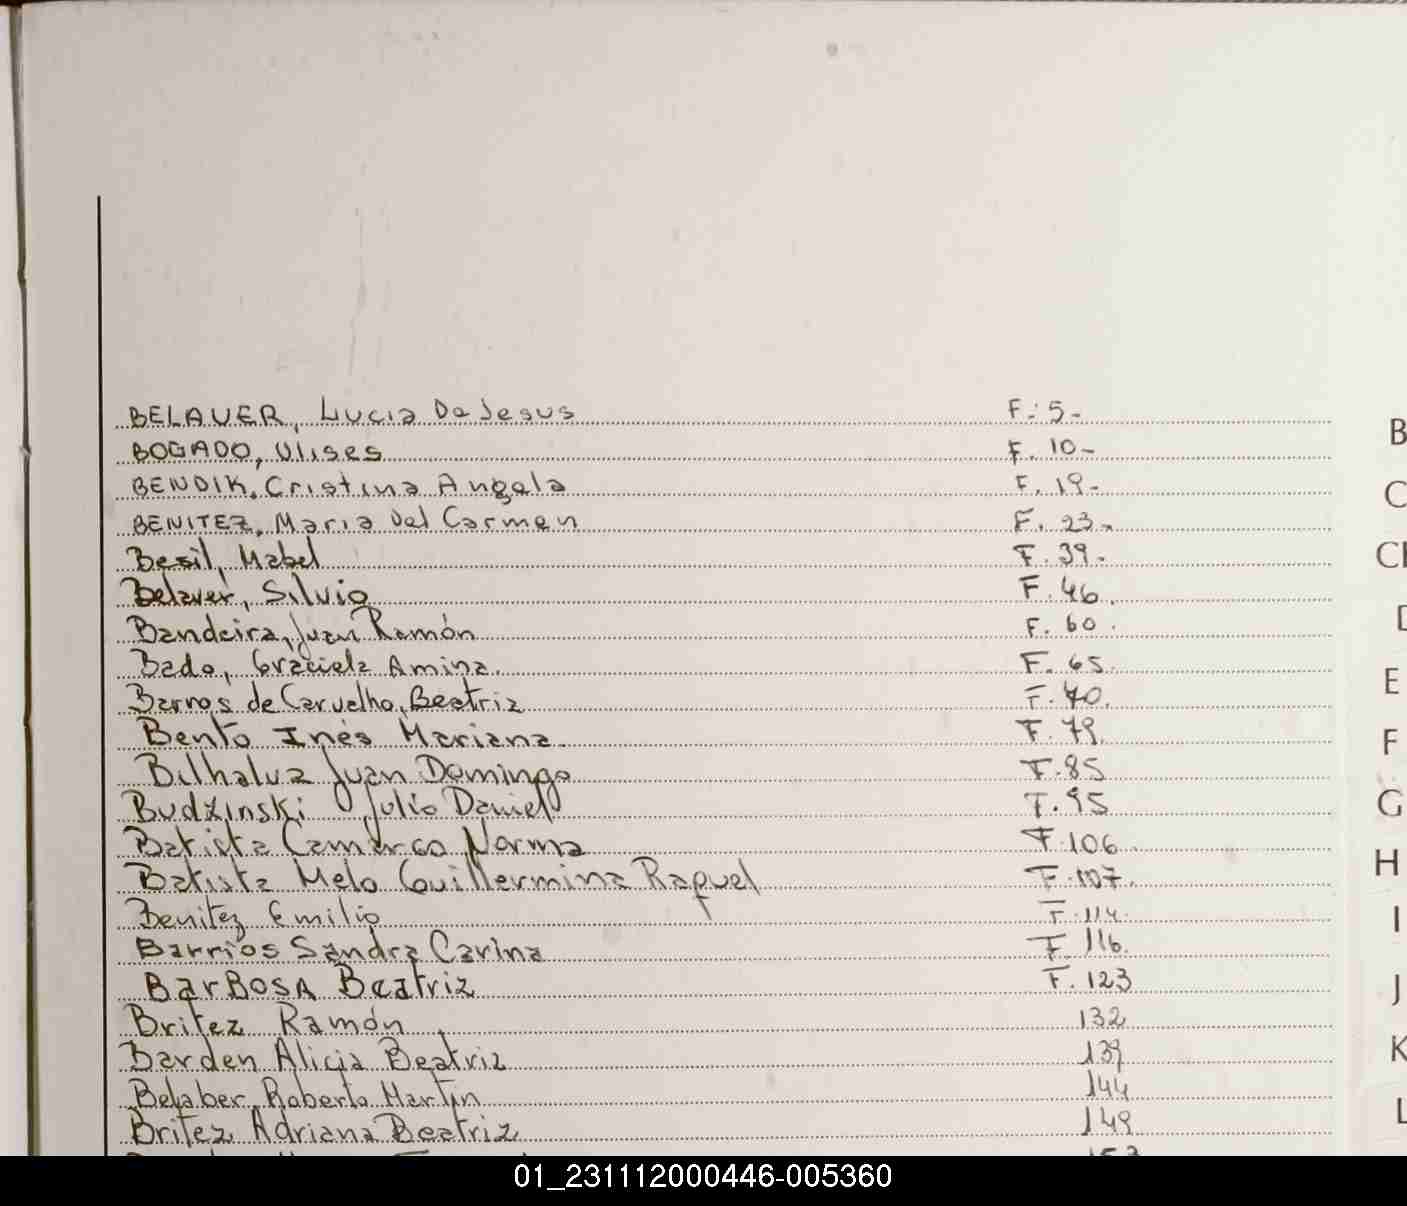 BELAUER, Lucia De Jesus F.: 5-
BOGADO, Ulises F. 10-
BENDIK, Cristina Angela F. 19-
BENITEZ, Maria Del Carmen F. 23-
Besil, Mabel F. 39-
Belaver, Silvio F. 46.
Bandeira, Juan Ramón F. 60.
Bado, Graciela Amina. F. 65.
Barros de Carvalho, Beatriz F. 70.
Bento Inés Mariana. F. 79.
Bilhalva Juan Domingo F. 85
Budzinski Julio Daniel F. 95
Batista Camargo Norma F. 106.
Batista Melo Guillermina Raquel F. 107.
Benitez Emilio F. 114.
Barrios Sandra Carina F. 116.
BarBOSA Beatriz F. 123
Britez Ramón 132
Barden Alicia Beatriz 139
Belaber Roberto Martín 144
Britez Adriana Beatriz 149
B
C
E
F
G
H
I
J
K
L
01_231112000446-005360